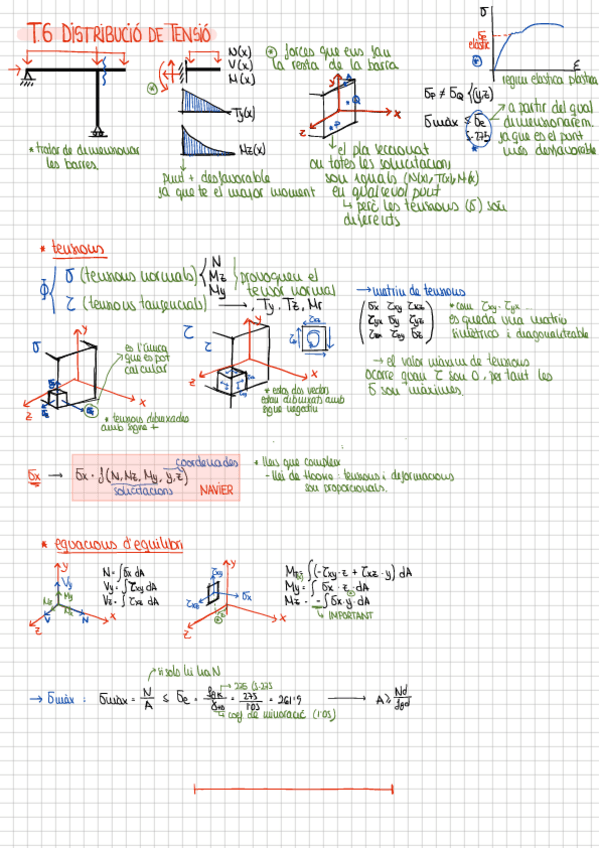 T.6 DISTRIBUCIÓ DE TENSIÓ
* tractar de dimensionar
les barres.
N(x)
V(x)
M(x)
* forces que ens fan
la resta de la barra
Ty(x)
Mz(x)
punt + desfavorable
ja que té el major moment
y
x
z
P
Q
el pla seccionat
on totes les sol·licitacions
són iguals (N(x), T(x), M(x))
en qualsevol punt
↳ però les tensions (σ) són
diferents
σ
σe
elàstic
ε
règim elàstica plàstica
σP ≠ σQ {(y,z)
σmàx ≤ σe
S-275
→ a partir del qual
dimensionarem.
ja que és el punt
més desfavorable
* tensions
Φ
σ (tensions normals)
N
Mz
My
provoquen el
tensor normal
τ (tensions tangencials) → Ty, Tz, Mt
→ matriu de tensions
σx τxy τxz
τyx σy τyz
τzx τzy σz
* com τxy = τyx ...
es queda una matriu
simètrica i diagonalitzable
→ el valor màxim de tensions
ocorre quan τ són 0, per tant les
σ són màximes.
σ
y
x
z
és l'única
que es pot
calcular
* tensions dibuixades
amb signe +
τ
y
x
z
* estos dos vectors
estan dibuixats amb
signe negatiu
σx → σx = f(N, Mz, My, y, z)
coordenades
sol·licitacions
NAVIER
* lleis que compleix
- llei de Hooke: tensions i deformacions
són proporcionals.
* equacions d'equilibri
y
Vy
My
N
x
z
N = ∫σx dA
Vy = ∫τxy dA
Vz = ∫τxz dA
y
τxy
τxz
σx
x
z
Mx = ∫(-τxy·z + τxz·y) dA
My = ∫σx·z dA
Mz = -∫σx·y dA
↳ IMPORTANT
si sols hi ha N
→ σmàx : σmàx = N/A ≤ σe = fyk/γM0 = 275/1'05 = 261'9 → A ≥ Nd/fyd
→ 275 (S-275
↳ coef de minoració (1'05)